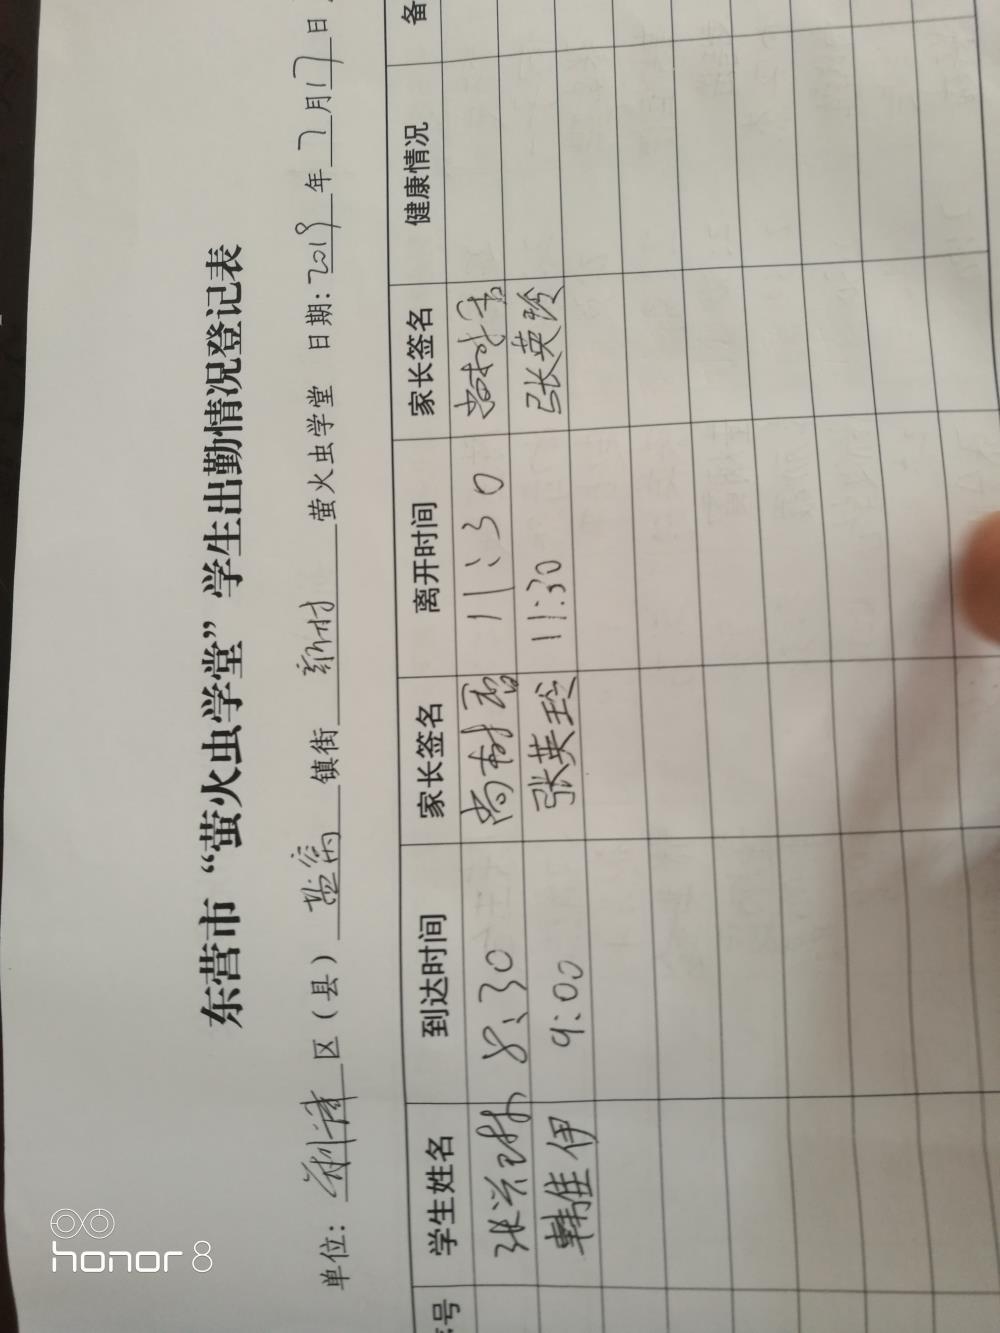 东营市“萤火虫学堂”学生出勤情况登记表
单位：利津区（县）盐窝镇街新村萤火虫学堂 日期：2019年7月17日
号 学生姓名 到达时间 家长签名 离开时间 家长签名 健康情况 备
张兴琳 8:30 尚树香 11:30
韩佳伊 9:00 张英玲 11:30 张英玲
honor 8